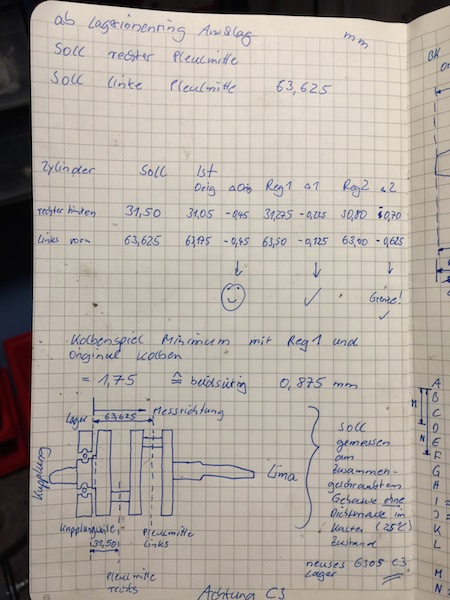 ab Lagerinnenring Anschlag mm
Soll rechter Pleulmitte
Soll linke Pleulmitte 63,625
Zylinder Soll Ist
Orig Δ Orig Reg1 Δ1 Reg2 Δ2
rechter hinten 31,50 31,05 -0,45 31,275 -0,225 30,80 -0,70
Links vorn 63,625 63,175 -0,45 63,50 -0,125 63,00 -0,625
Grenze!
Kolbenspiel Minimum mit Reg1 und
original Kolben
= 1,75 ≙ beidseitig 0,875 mm
Lager 63,625 Messrichtung
Kupplung
Lima
Soll
gemessen
am
zusammen-
geschraubtem
Gehäuse ohne
Dichtmasse im
Kalten (25°C)
Zustand
neues 6305 C3
Lager
Kupplungseite
31,50
Pleulmitte
Links
Pleulmitte
rechts
Achtung C3
BK
A
B
C
D
E
F
G
H
I
J
K
L
M
N